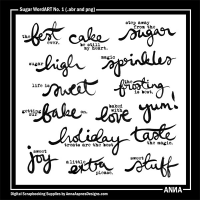 Sugar WordART No. 1 (.abr and png)
the best ever.
cake be still my heart.
step away from the sugar
sugar high
magic sprinkles
life is sweet
the frosting is best.
getting our bake on.
baked with love
yum!
holiday treats are the best
taste the magic.
sweet joy
a little extra please.
sweet stuff
ANMA
Digital Scrapbooking Supplies by AnnaAspnesDesigns.com